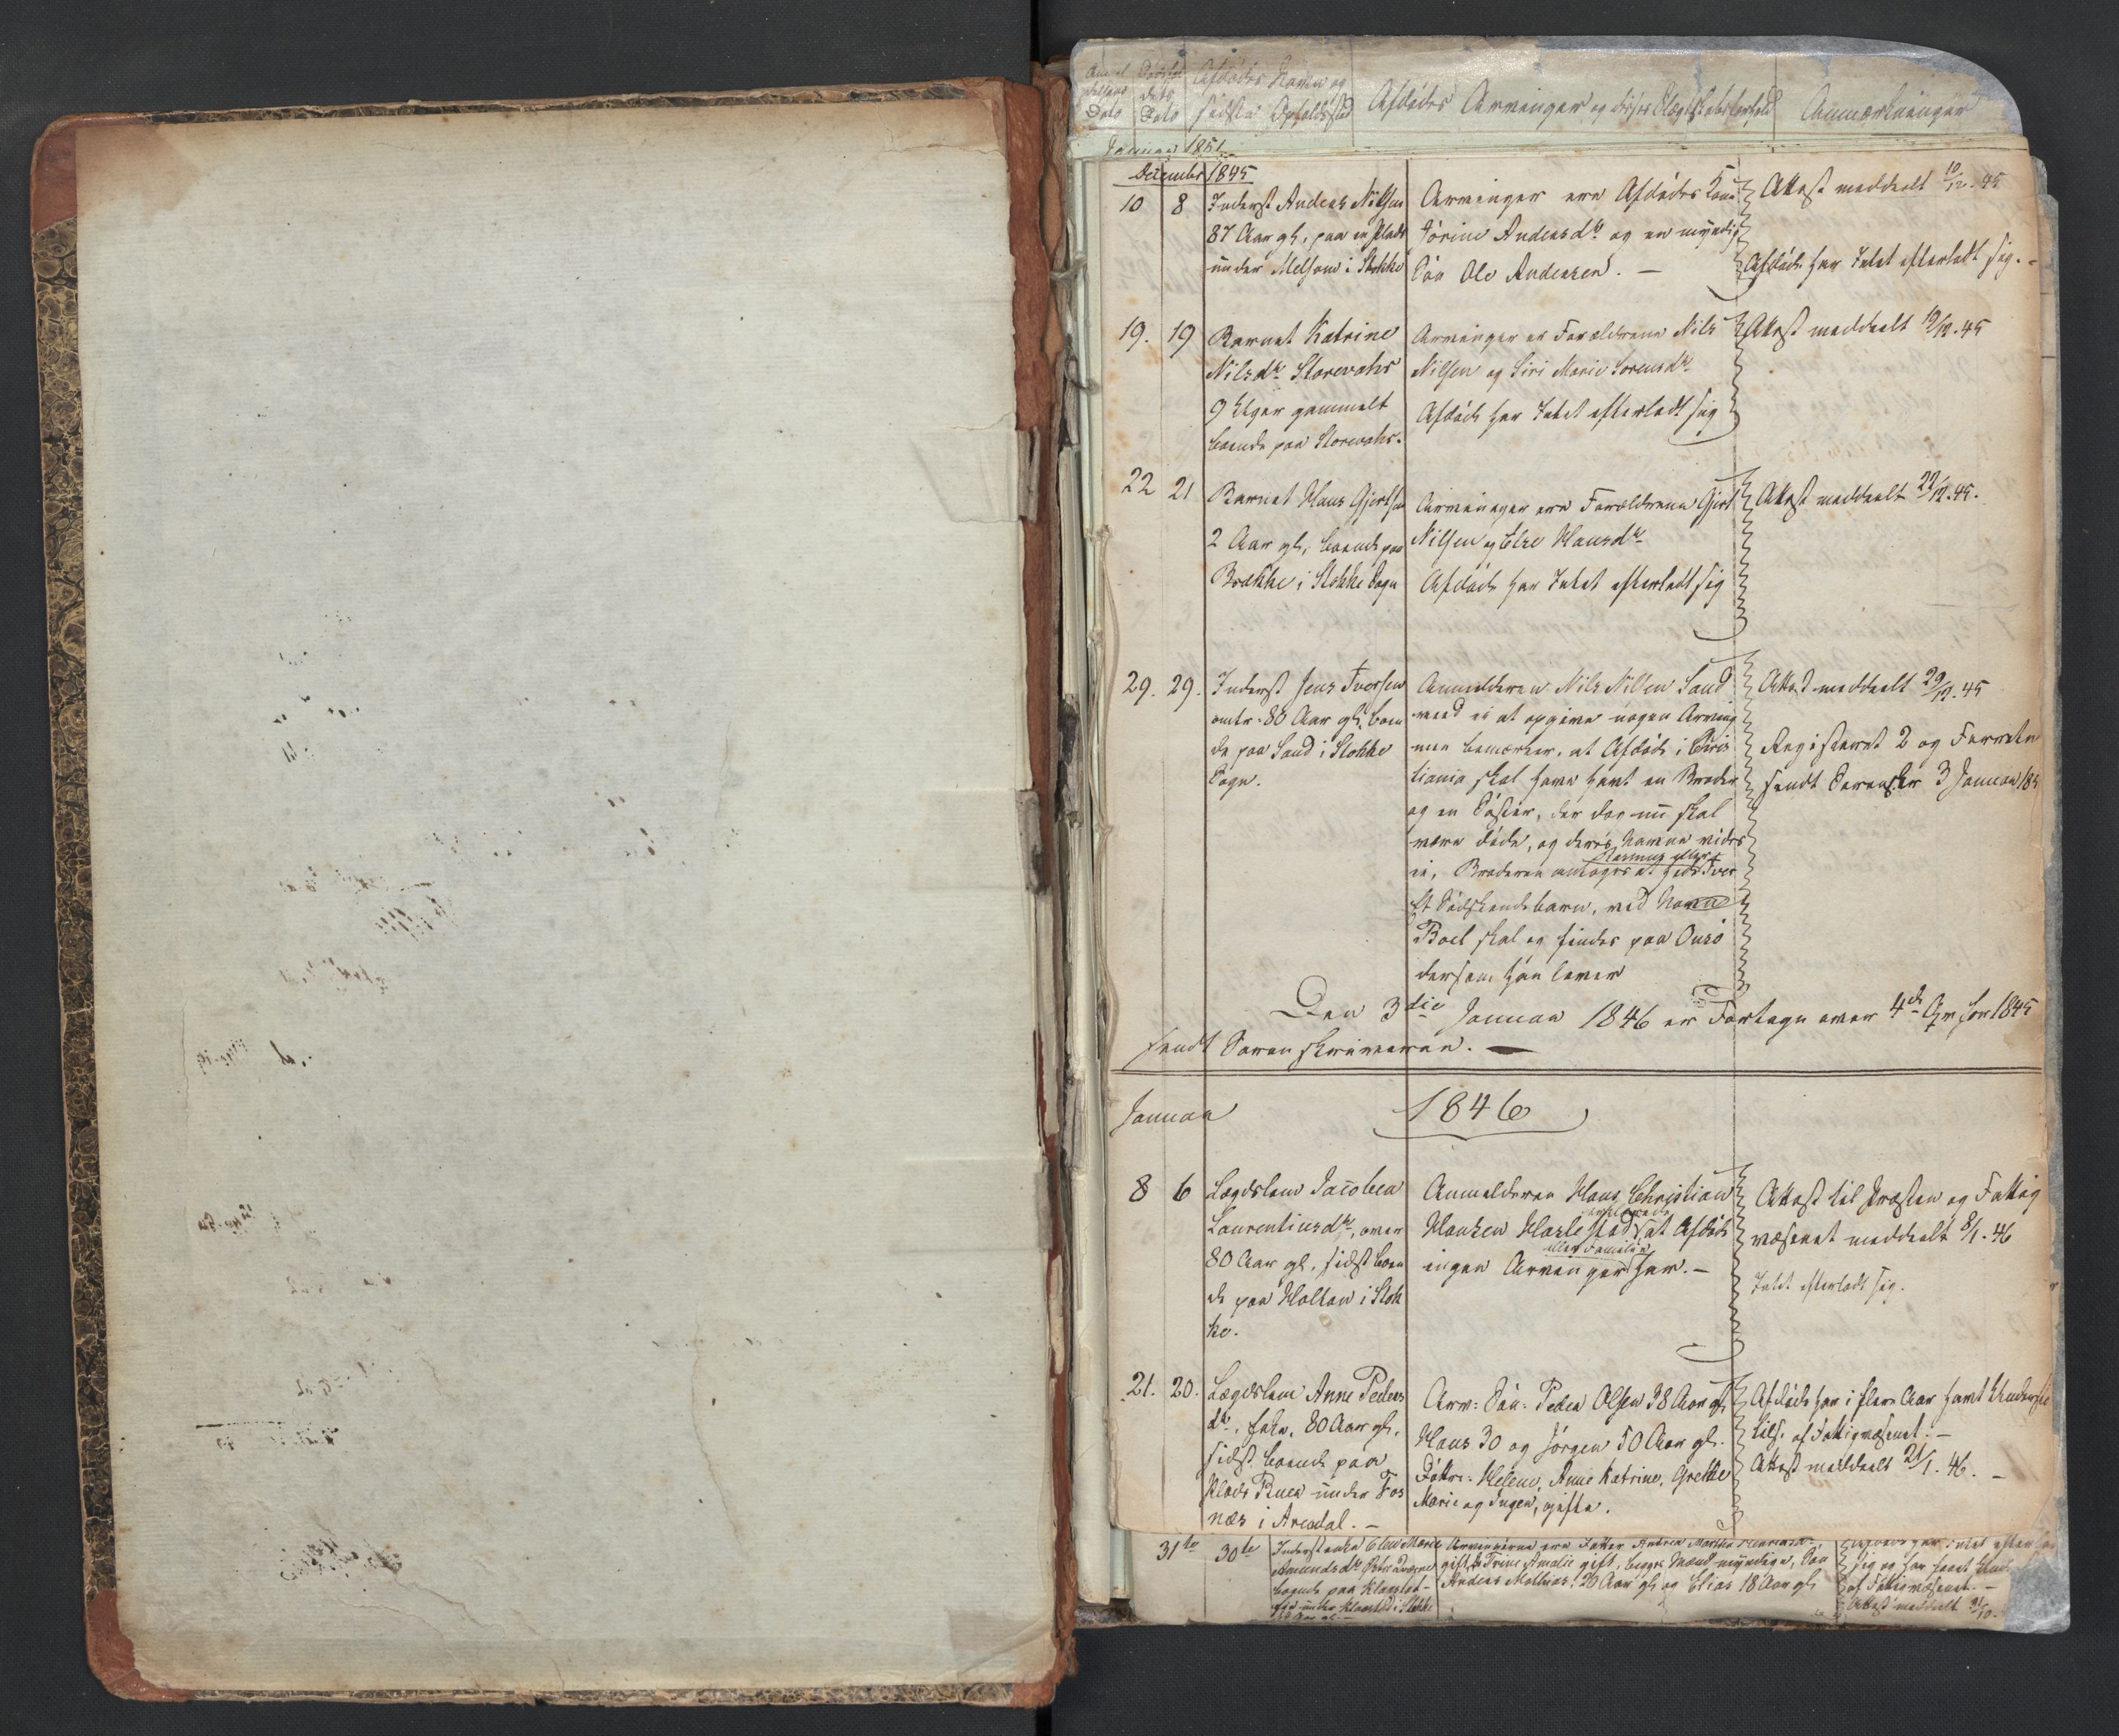 Anmel
delsens
Dato
Dødsfal
dets
Dato
Afdødes Navn og
sidste Opholdssted
Afdødes Arvinger og disses Slægtskabsforhold
Anmærkninger
Januar 1851
December 1845
10 8 Inderst Anders Nilsen
87 Aar gl, paa en Plads
under Melsom i Stokke
Arvinger ere Afdødes Kone
Jørine Andersdtr og en myndig
Søn Ole Andersen. —
Attest meddeelt 10/12. 45
Afdøde har Intet efterladt sig. -
19. 19 Barnet Katrine
Nilsdtr Storevahr
9 Uger gammelt
boende paa Storevahr.
Arvinger er Forældrene Nils
Nilsen og Siri Marie Sorensdtr
Afdøde har Intet efterladt sig
Attest meddeelt 19/12. 45
22 21 Barnet Hans Gjertsen
2 Aar gl, boende paa
Brække i Stokke Sogn
Arvinger ere Forældrene Gjert
Nilsen og Else Hansdtr
Afdøde har Intet efterladt sig
Attest meddeelt 22/12. 45.
29. 29. Inderst Jens Iversen
omtr. 80 Aar gl, boen
de paa Sand i Stokke
Sogn.
Anmelderen Nils Nilsen Sand
veed ei at opgive nogen Arving
men bemærker, at Afdøde i Chris
tiania skal have havt en Broder
og en Søster, der dog nu skal
være døde, og deres Navne vides
ei, Broderen antages at hede Iver
Rasmus eller
Et Sødskendebarn, ved Navn
Boel skal og findes paa Ourø
dersom hun lever
Attest meddeelt 29/12. 45
Registeret 2 og Forretn
sendt Sorenskr 3 Januar 184
Den 3die Januar 1846 er Fortegn over 4de Qr for 1845
sendt Sorenskriveren. —
Januar 1846
8 6 Lægdslem Jacobea
Laurentiusdtr, over
80 Aar gl, sidst boen
de paa Holtan i Stok
ke.
Anmelderen Hans Christian
Hansen Harlestad at Afdøde
eller Familie
ingen Arvinger har. —
Attest til Præsten og Fattig
væsenet meddeelt 8/1. 46
Intet efterladt sig.
21. 20. Lægdslem Anne Peders
dtr, Enke, 80 Aar gl,
sidst boende paa
Plads Buen under Fos
næs i Arendal. —
Arv: Søn: Peder Olsen 38 Aar gl
Hans 30 og Jørgen 50 Aar gl.
Døttre: Helene, Anne Katrine, Grethe
Marie og Inger, gifte.
Afdøde har i flere Aar havt Understøt
telse af Fattigvæsenet. —
Attest meddeelt 21/1. 46. —
31te 30te Inderst enke Ellen Marie
Amundsdtr
boende paa Klaastad
under Klaastad i Stokke
Arvingerne ere Datter Andrea Martha
gift, Trine Amalie gift, begges Mænd myndige, Søn
Anders Mathias 20 Aar gl og Elias 18 Aar gl
Intet efter
sig og har faaet Und
af Fattigvæsenet. —
Attest meddeelt 31/10.